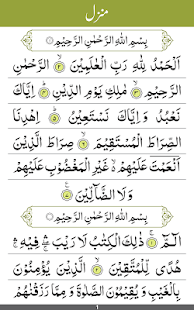 منزل
بِسْمِ اللهِ الرَّحْمٰنِ الرَّحِيْمِ
اَلْحَمْدُ لِلّٰهِ رَبِّ الْعٰلَمِيْنَ ﴿۱﴾ الرَّحْمٰنِ
الرَّحِيْمِ ﴿۲﴾ مٰلِكِ يَوْمِ الدِّيْنِ ﴿۳﴾ اِيَّاكَ
نَعْبُدُ وَاِيَّاكَ نَسْتَعِيْنُ ﴿۴﴾ اِهْدِنَا
الصِّرَاطَ الْمُسْتَقِيْمَ ﴿۵﴾ صِرَاطَ الَّذِيْنَ
اَنْعَمْتَ عَلَيْهِمْ غَيْرِ الْمَغْضُوْبِ عَلَيْهِمْ
وَلَا الضَّآلِّيْنَ
بِسْمِ اللهِ الرَّحْمٰنِ الرَّحِيْمِ
الٓمّٓ ﴿۱﴾ ذٰلِكَ الْكِتٰبُ لَا رَيْبَ فِيْهِ
هُدًى لِّلْمُتَّقِيْنَ ﴿۲﴾ الَّذِيْنَ يُؤْمِنُوْنَ
بِالْغَيْبِ وَيُقِيْمُوْنَ الصَّلٰوةَ وَمِمَّا رَزَقْنٰهُمْ
۱